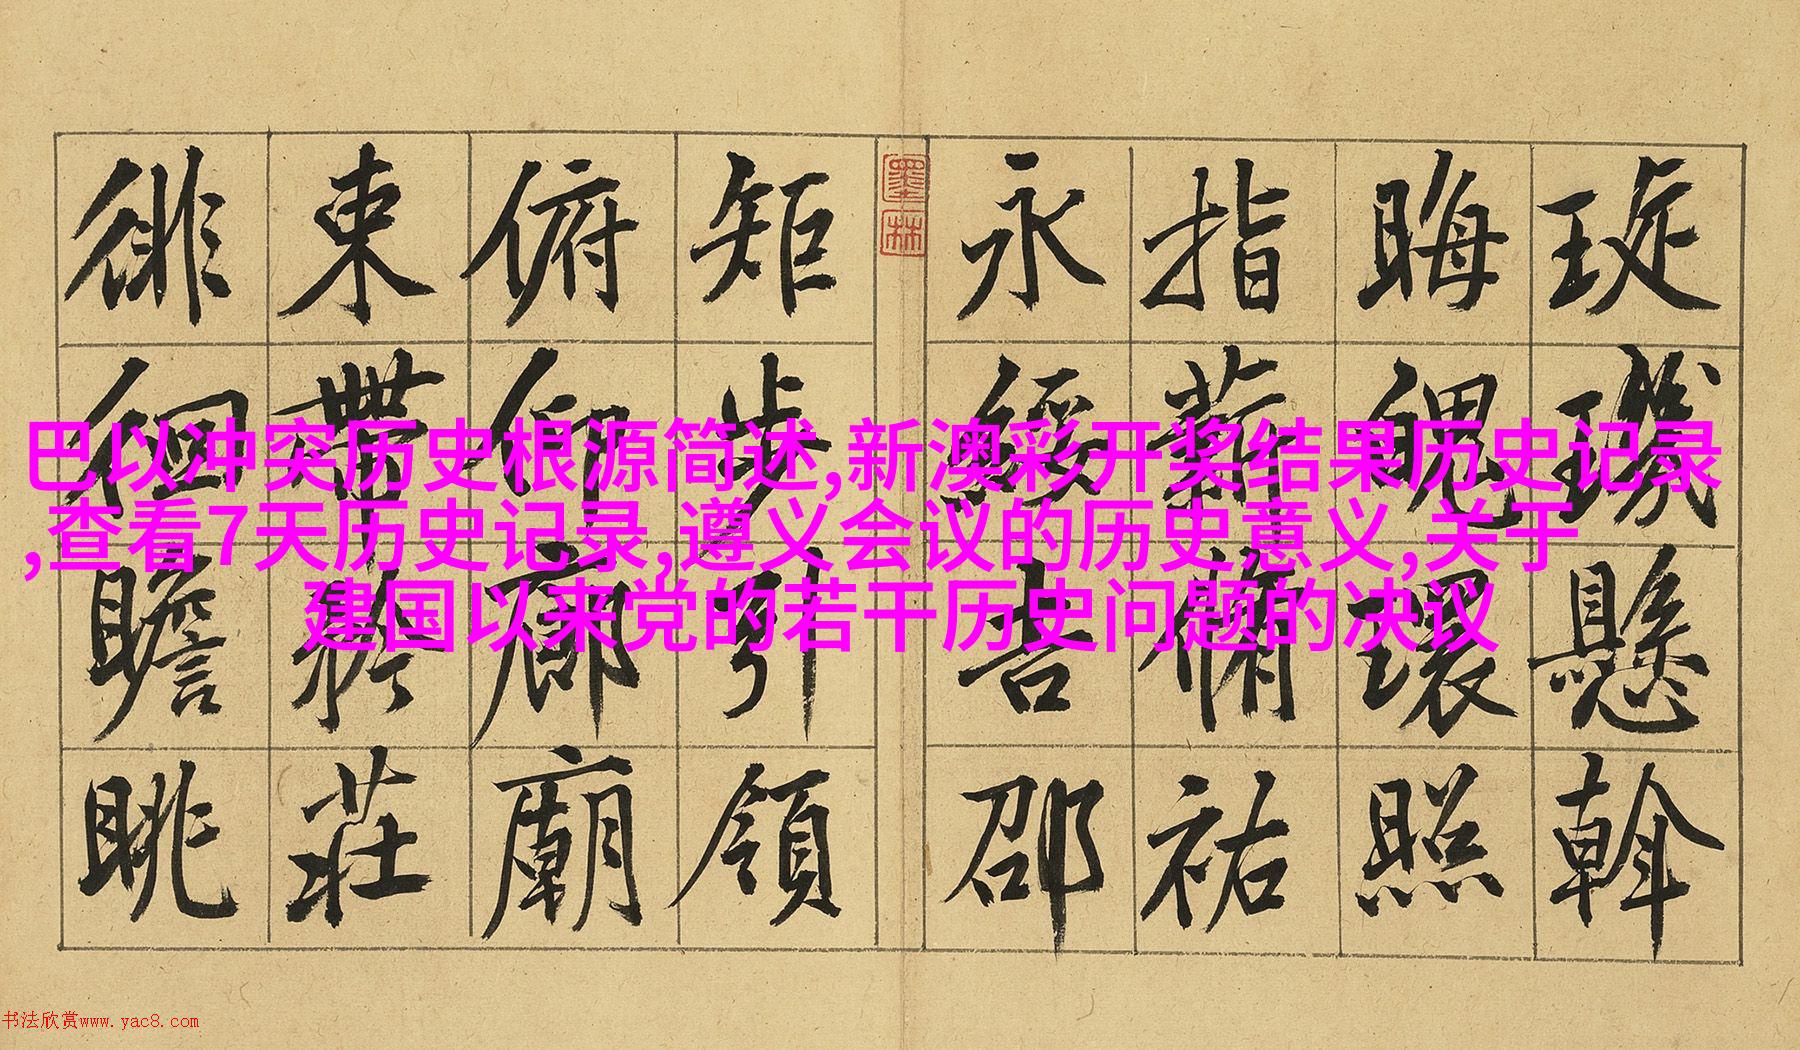 璇璣懸斡
晦魄環照
指薪脩祜
永綏吉邵
墨林
矩步引領
俯仰廊廟
束帶矜莊
徘徊瞻眺
巴以冲突历史根源简述,新澳彩开奖结果历史记录
,查看7天历史记录,遵义会议的历史意义,关于
建国以来党的若干历史问题的决议
书法欣赏www.yac8.com